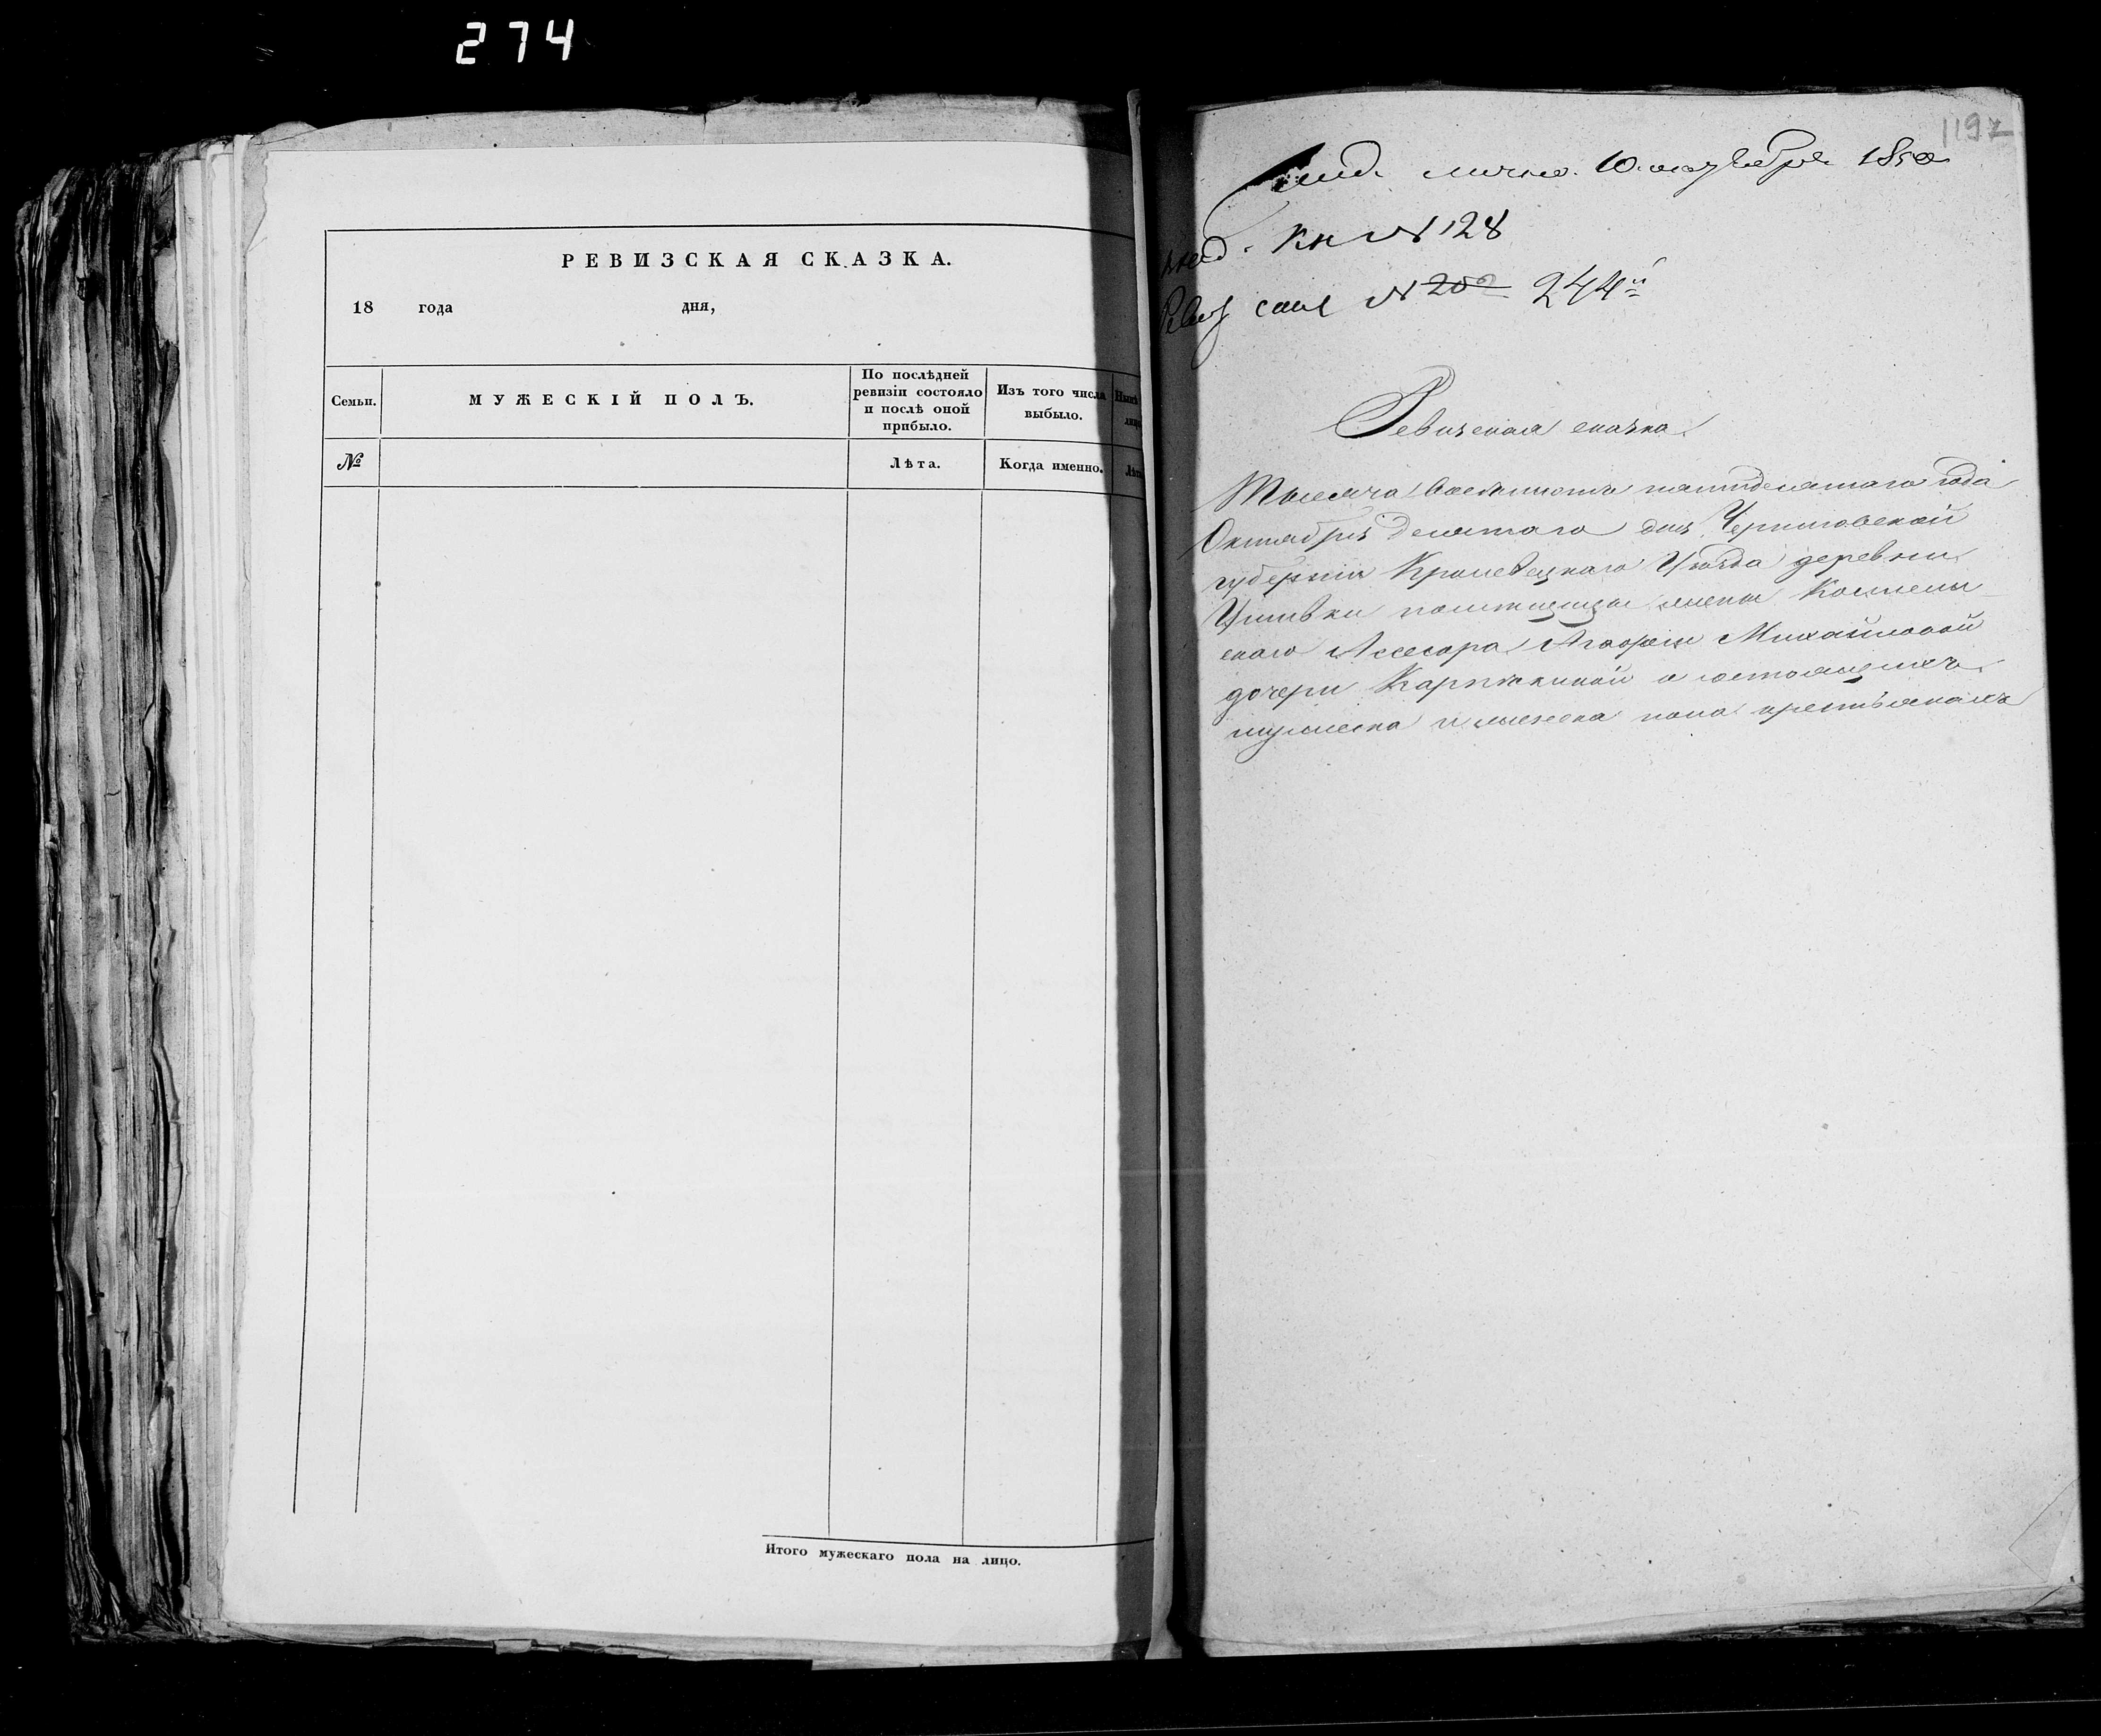 274
РЕВИЗСКАЯ СКАЗКА.
18 года дня,
Семьи.
МУЖЕСКІЙ ПОЛЪ.
По послѣдней
ревизіи состояло
и послѣ оной
прибыло.
Изъ того числа
выбыло.
№
Лѣта.
Когда именно.
Итого мужескаго пола на лицо.
1197
лично 10 октября 1850
Кн № 128
Ревиз сказ № 202 244й
Ревизская сказка
Тысяча восемьсотъ пятидесятаго года
Октября десятаго дня Черниговской
губерніи Кролевецкаго Уѣзда деревни
помѣщицы жены Коллеж
скаго Ассесора Агафіи Михайловой
дочери о состоящихъ
мужеска и женска пола крестьянахъ